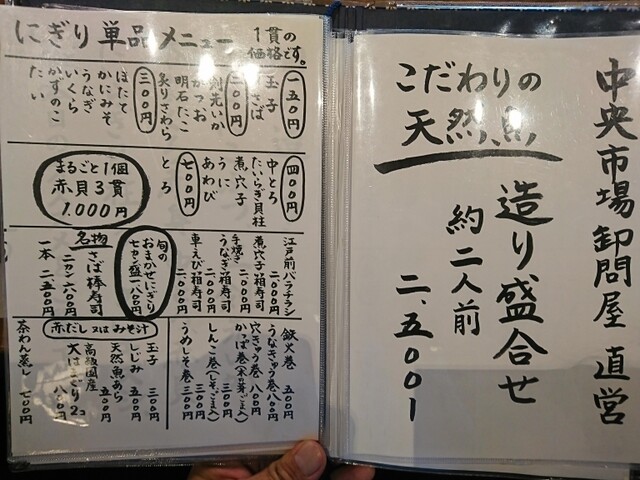 にぎり単品メニュー
1貫の
価格です。
一五〇円
玉子
さば
二〇〇円
剣先いか
かつお
明石たこ
炙りさわら
三〇〇円
ほたて
かにみそ
うなぎ
いくら
かずのこ
たい
四〇〇円
中とろ
たいらぎ貝柱
煮穴子
うに
あわび
七〇〇円
とろ
まるごと1個
赤貝3貫
1.000円
江戸前バラチラシ
二.〇〇〇円
煮穴子箱寿司
二.〇〇〇円
手焼き
うなぎ箱寿司
二.〇〇〇円
車えび箱寿司
二.〇〇〇円
旬の
おまかせにぎり
七カン盛一八〇〇円
名物
さば棒寿司
二カン六〇〇円
一本 二五〇〇円
鉄火巻 五〇〇円
うなきゅう巻八〇〇円
穴きゅう巻 八〇〇円
しんこ巻(しそ、ごま入)
三〇〇円
うめしそ巻 三〇〇円
赤だし又はみそ汁
玉子 三〇〇円
しじみ 五〇〇円
天然魚あら
五〇〇円
高級国産
大はまぐり2コ
八〇〇円
茶わん蒸し 七〇〇円
中央市場卸問屋直営
こだわりの
天然魚
造り盛合せ
約二人前
二、五〇〇-